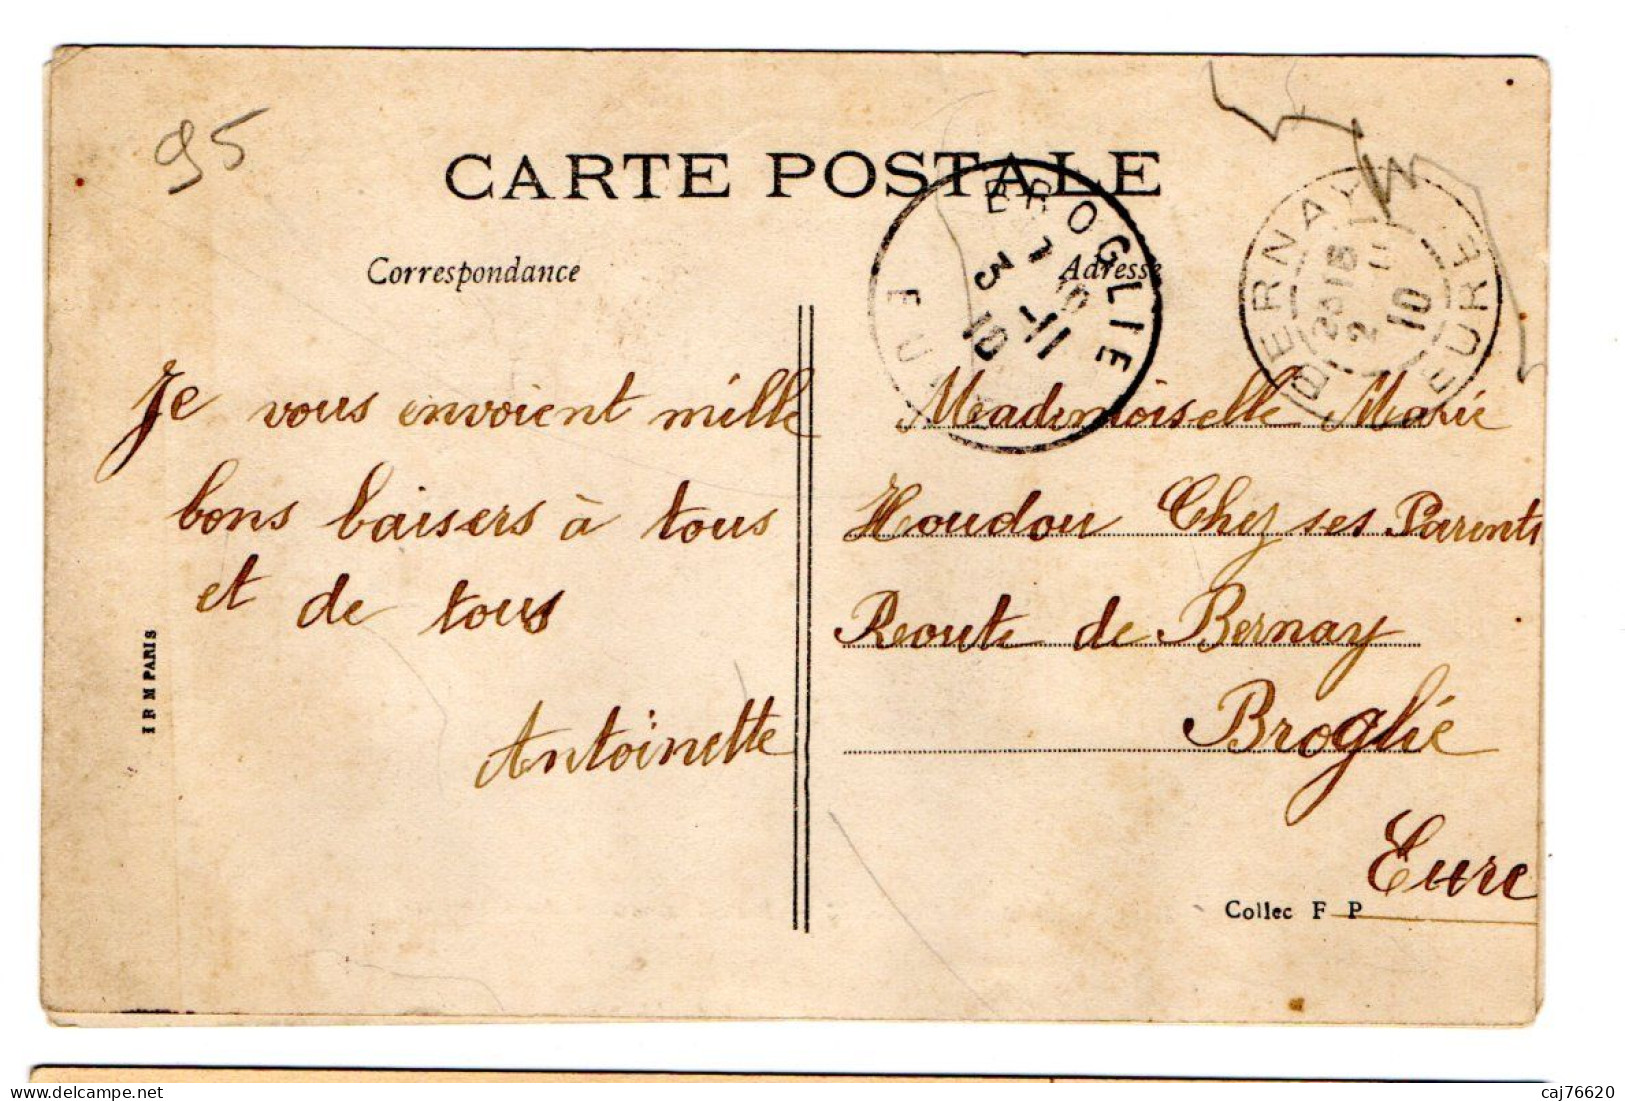 95
CARTE POSTALE
Correspondance
Adresse
BROGLIE
7 10
3 -11
10
BERNAY
23 15
2 11
10
EURE
Je vous envoient mille
bons baisers à tous
et de tous
Antoinette
Mademoiselle Marie
Houdou Chez ses Parents
Route de Bernay
Broglie
Eure
I R M PARIS
Collec F P
caj76620